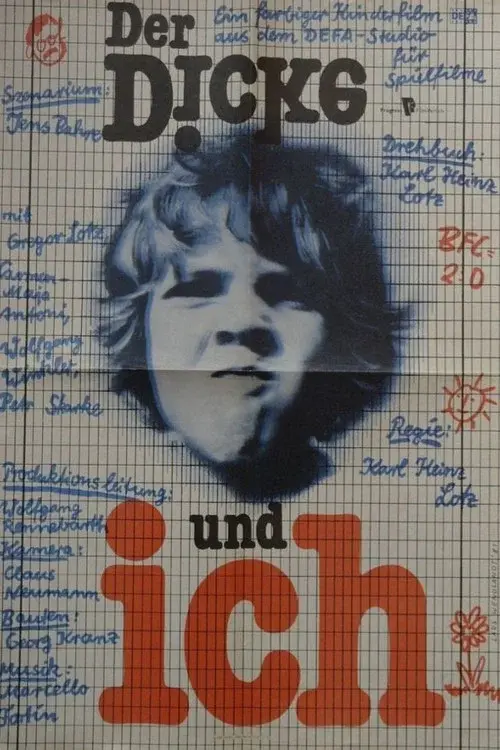 Der
DiCKe
Ein farbiger Kinderfilm
aus dem DEFA-Studio
für
Spielfilme
DEFA
Progress
Szenarium:
Jens Bahre
Drehbuch:
Karl Heinz
Lotz
mit
Gregor Lotz
Carmen-
Maja
Antoni,
Wolfgang
Winkler,
Petr Skarke
BFC =
2:0
Regie:
Karl Heinz
Lotz
Produktionsleitung:
Wolfgang
Rennebarth
Kamera:
Claus
Neumann
Bauten:
Georg Kranz
Musik:
Marcello
Fortin
und
ich